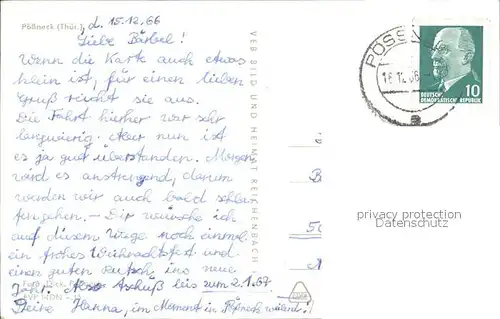 Pößneck (Thür.), d. 15.12.66
Liebe Bärbel!
Wenn die Karte auch etwas
klein ist, für einen lieben
Gruß reicht sie aus.
Die Fahrt hierher war sehr
langwierig. Aber nun ist
es ja gut überstanden. Morgen
wird es anstrengend, darum
werden wir auch bald schlafen
gehen. – Dir wünsche ich
auf diesem Wege noch einmal
ein frohes Weihnachtsfest und
einen guten Rutsch ins neue
Jahr. Also Tschüß bis zum 2.1.67
Deine Hanna, im Moment in Pößneck weilend!
VEB BILD UND HEIMAT REICHENBACH
PÖSSN
10
DEUTSCHE
DEMOKRATISCHE REPUBLIK
privacy protection
Datenschutz